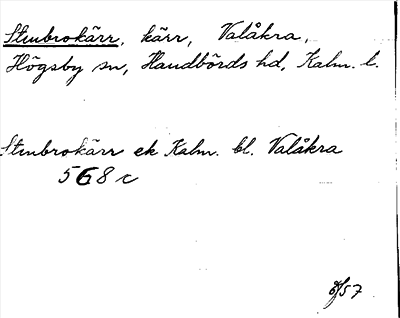 Stenbrokärr, kärr, Valåkra,
Högsby sn, Handbörds hd, Kalm. l.
Stenbrokärr ek Kalm. bl. Valåkra
568 c
57